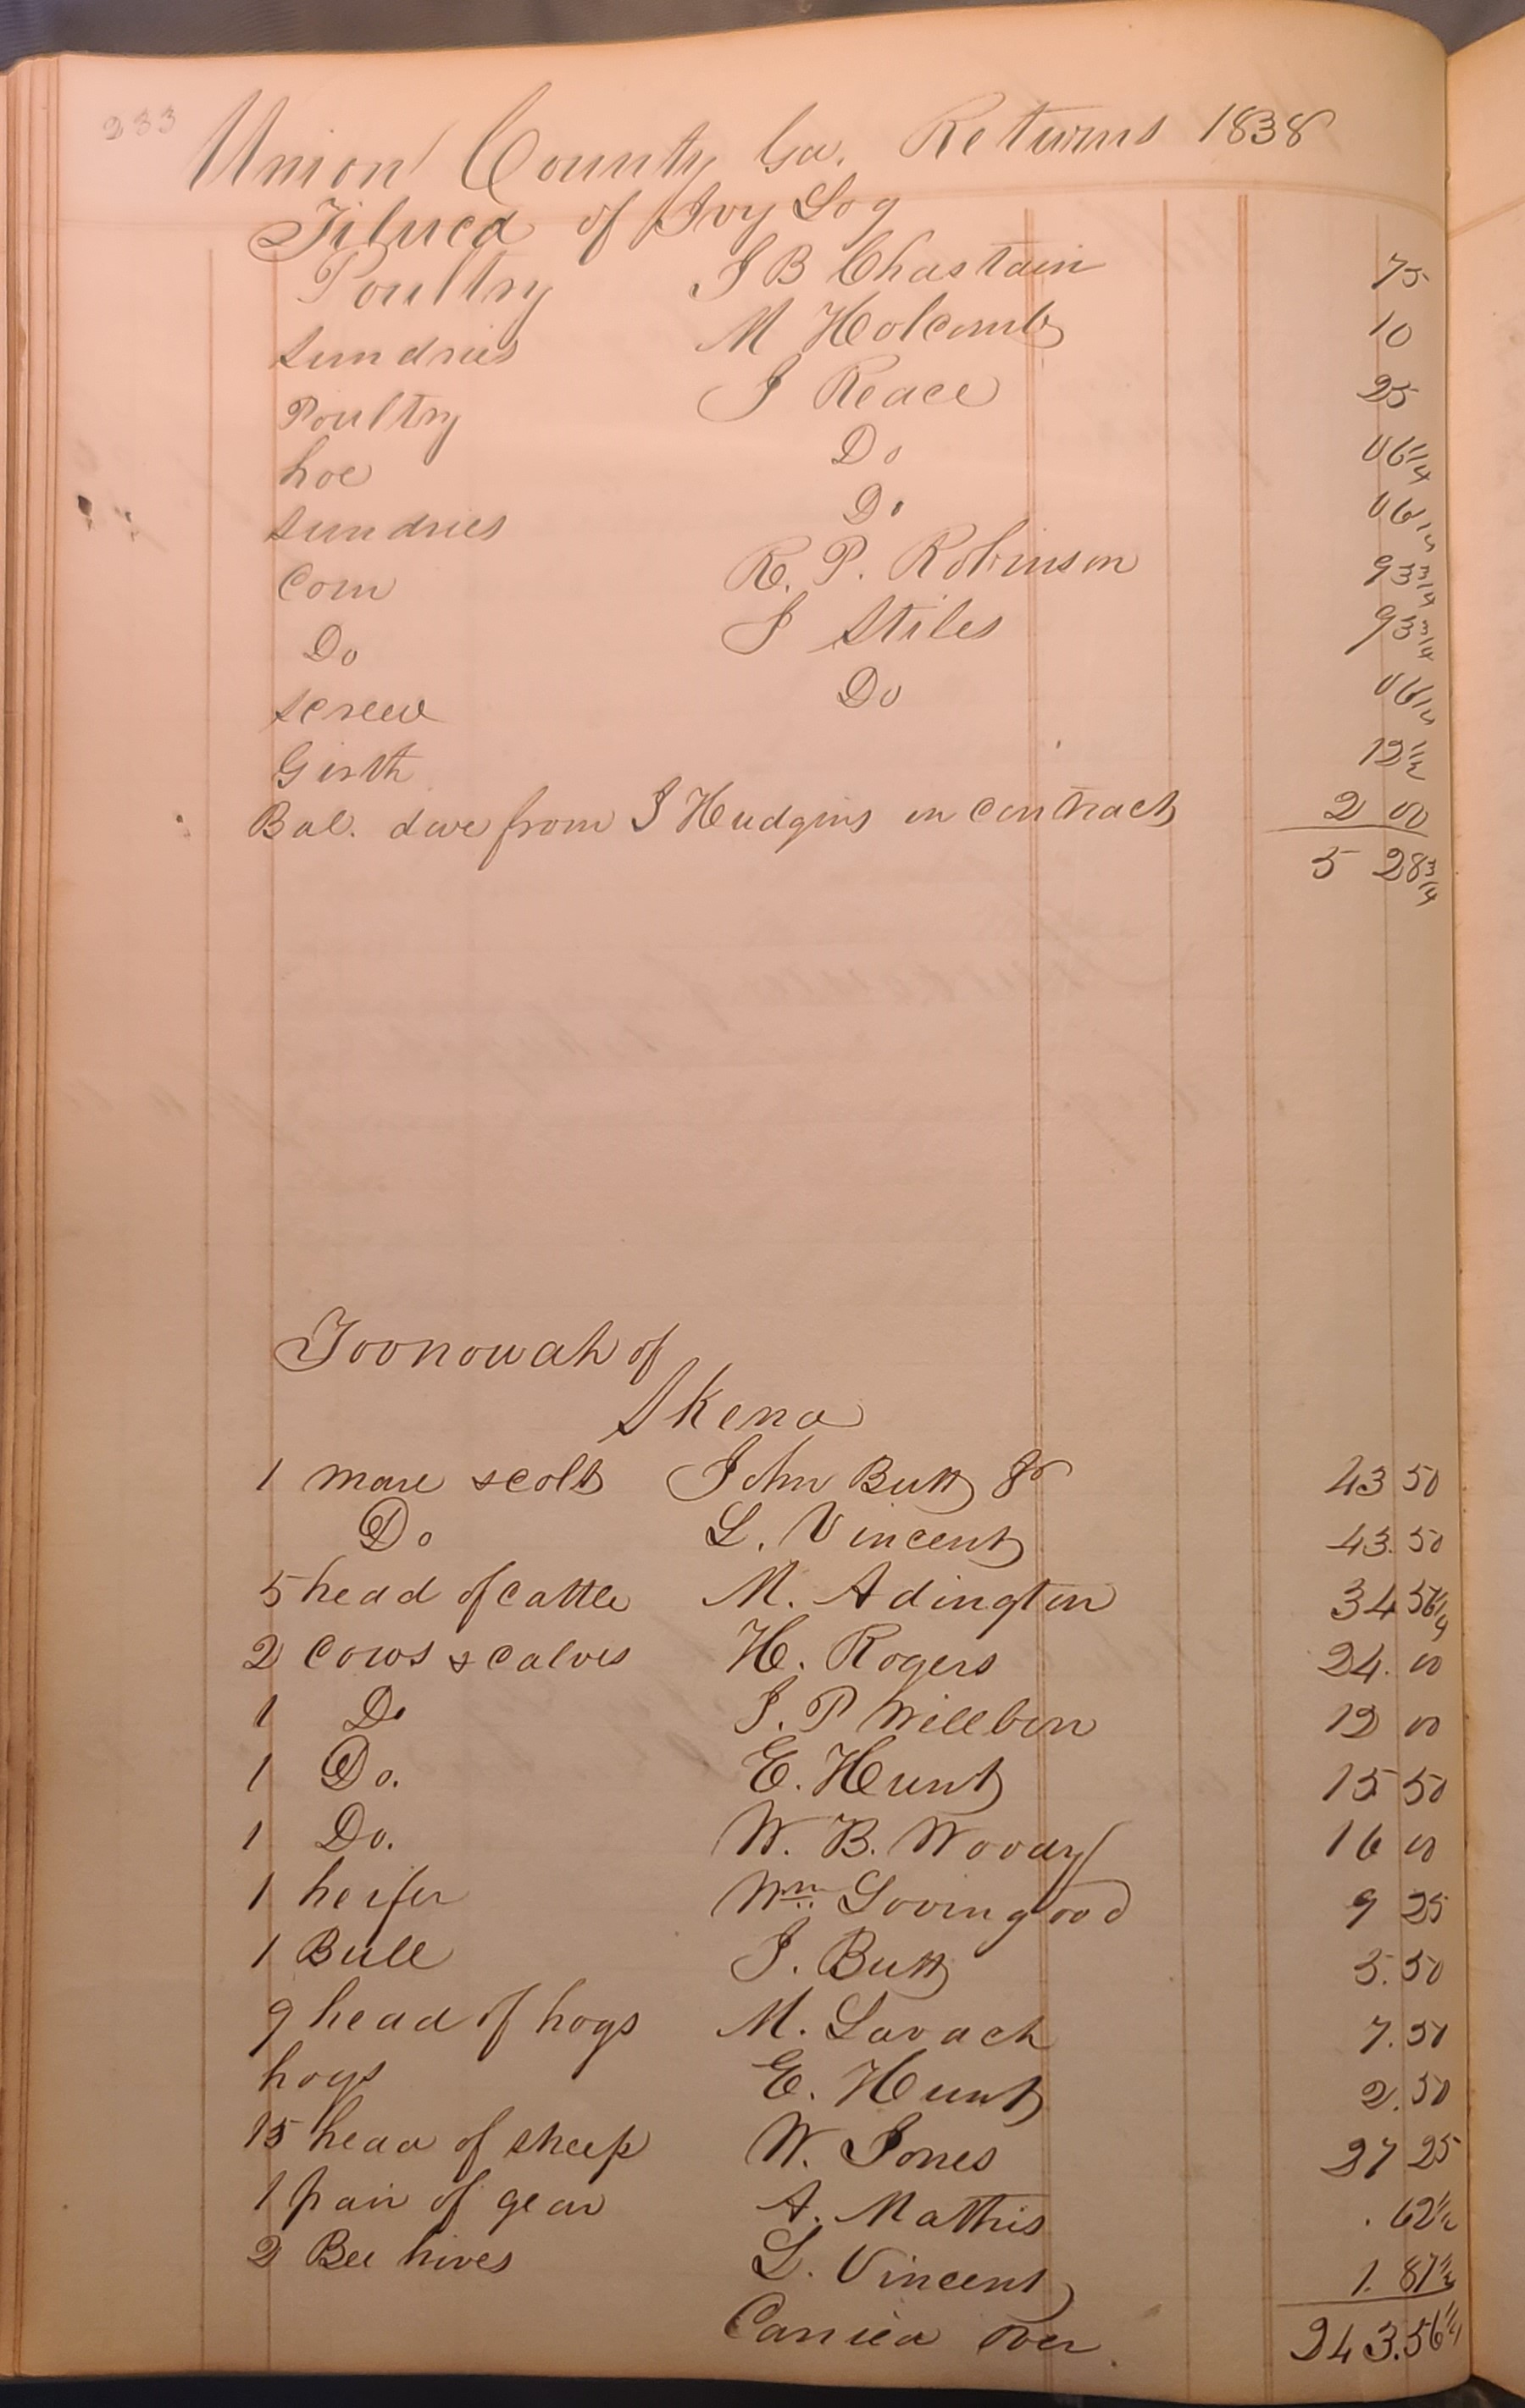 233
Union County Ga. Returns 1838
of Ivy Log
Poultry J B Chastain 75
Sundries M Holcomb 10
Poultry J Reace 25
hoe Do 06 1/4
Sundries Do 06 1/2
Corn R. P. Robinson 93 3/4
Do J Stiles 93 3/4
screw Do 06 1/2
Girth 12 1/2
Bal. due from J Hudgins on contract 2 00
5 28 3/4
Toonowah of
Skena
1 mare & colt John Butt Jr 43 50
Do L. Vincent 43.50
5 head of cattle M. Adington 34 56 1/4
2 cows & calves H. Rogers 24.00
1 Do J. P Willbon 12 00
1 Do. E. Hunt 15 50
1 Do. W. B. Woody 16 00
1 heifer Wm Lovingood 9 25
1 Bull J. Butt 5.50
9 head of hogs M. Lavach 7.50
hogs E. Hunt 2.50
15 head of sheep W. Jones 27 25
1 pair of gear A. Mathis .62 1/2
2 Bee hives L. Vincent 1.87 1/2
Carried over 243.56 1/4